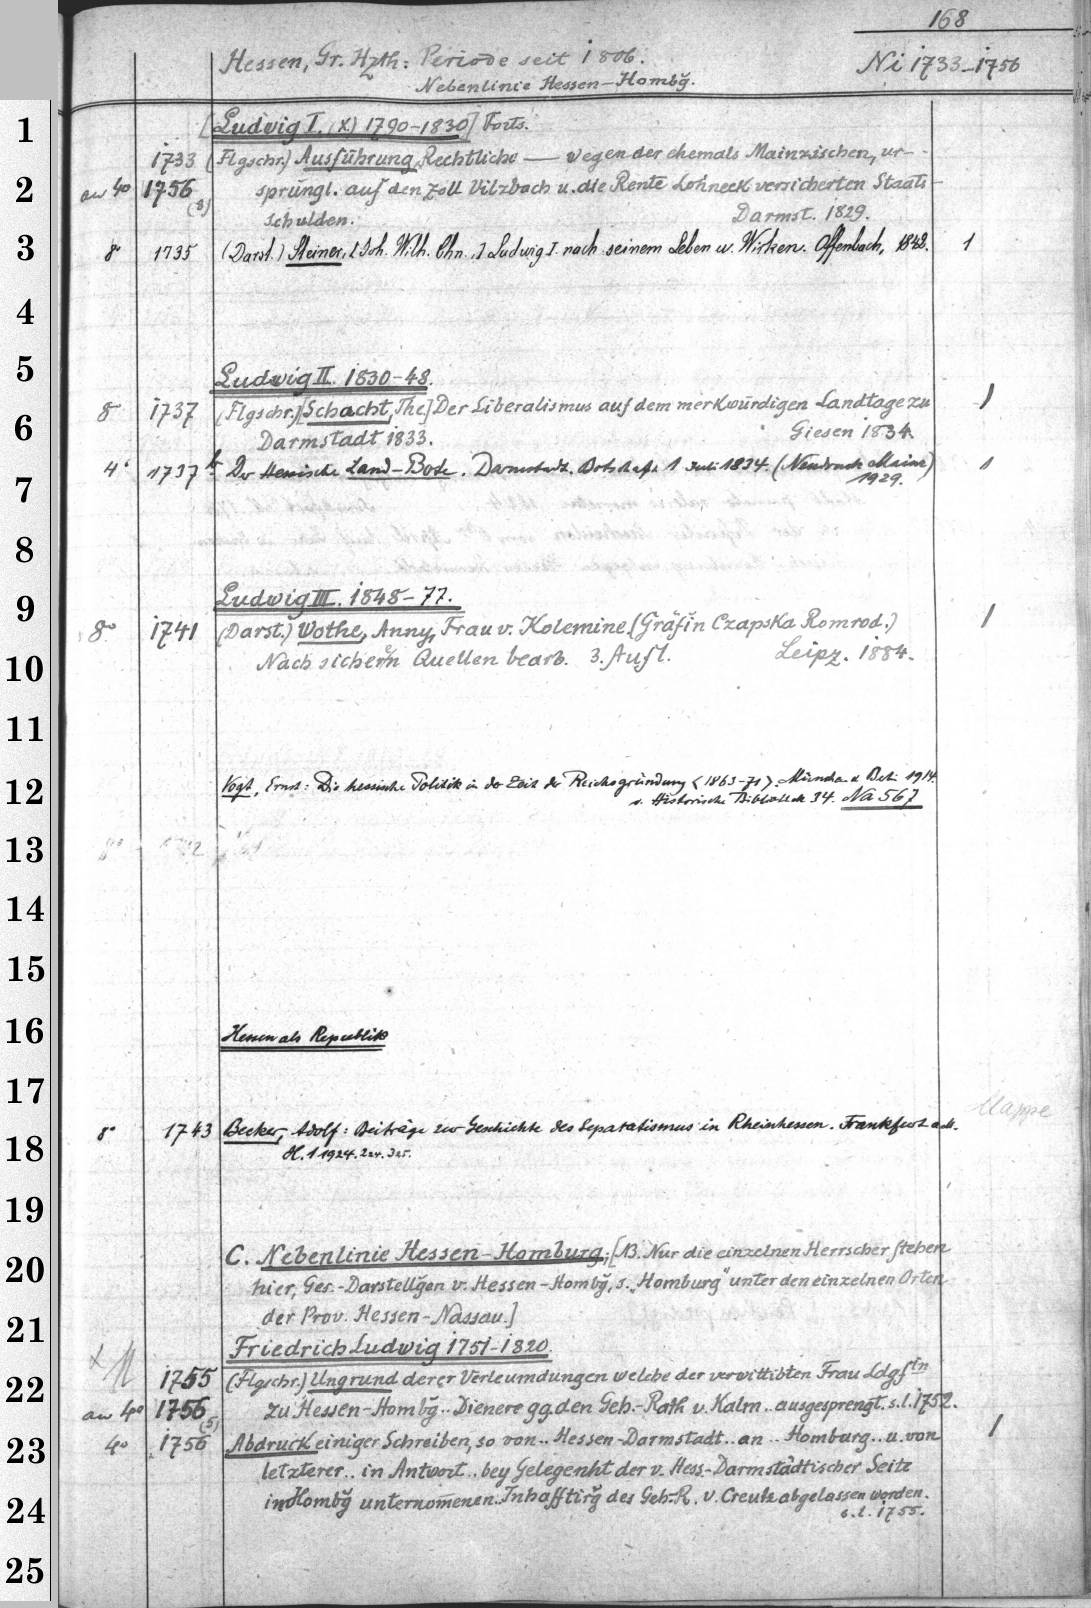 168
Hessen, Gr. Hzth: Periode seit 1806. Ni 1733-1756
Nebenlinie Hessen-Hombg̃.
1
[Ludwig I. (X) 1790-1830] Forts.
1733 (Flgschr.) Ausführung, Rechtliche — wegen der ehemals Mainzischen, ur-
2
an 4o 1756 (8) sprüngl. auf den Zoll Vilzbach u. die Rente Lohneck versicherten Staats-
schulden. Darmst. 1829.
3
8o 1735 (Darst.) Steiner, [Joh. Wilh. Chn.,] Ludwig I. nach seinem Leben u. Wirken. Offenbach, 1842. 1
4
5
Ludwig II. 1830-48.
8o 1737 (Flgschr.) [Schacht, The] Der Liberalismus auf dem merkwürdigen Landtage zu 1
6
Darmstadt 1833. Giesen 1834.
4o 1737 b Der Hessische Land-Bote. Darmstadt. Botschaft 1 Juli 1834. (Neudruck Mainz) 1
7
1929.
8
9
Ludwig III. 1848-77.
8o 1741 (Darst.) Wothe, Anny, Frau v. Kolemine. (Gräfin Czapska Romrod.) 1
10
Nach sichern Quellen bearb. 3. Aufl. Leipz. 1884.
11
12
Vogt, Ernst: Die hessische Politik in der Zeit der Reichsgründung (1863-71). München u. Berl. 1914.
s. Historische Bibliothek 34. Na 567
13
14
15
16
Hessen als Republik
17
Mappe
18
8o 1743 Becker, Adolf: Beiträge zur Geschichte des Separatismus in Rheinhessen. Frankfurt a. M.
19
20
C. Nebenlinie Hessen-Homburg; [NB. Nur die einzelnen Herrscher stehen
hier, Ges.-Darstellg̃en v. Hessen-Hombg̃, s. "Homburg" unter den einzelnen Orten
21
der Prov. Hessen-Nassau.]
Friedrich Ludwig 1751-1820.
22
1755 (Flgschr.) Ungrund derer Verleumdungen welche der verwittibten Frau Ldgfin
an 4o 1756 (5) zu Hessen-Hombg̃.. Dienere gg. den Geh.-Rath v. Kalm.. ausgesprengt. s.l. 1752.
23
4o 1756 Abdruck einiger Schreiben, so von.. Hessen-Darmstadt.. an.. Homburg.. u. von 1
letzterer.. in Antwort.. bey Gelegenht der v. Hess-Darmstädtischer Seite
24
in Hombg̃ unternom̃enen.. Inhafftirg̃ des Geh-R. v. Creutz abgelassen worden.
s. l. 1755.
25